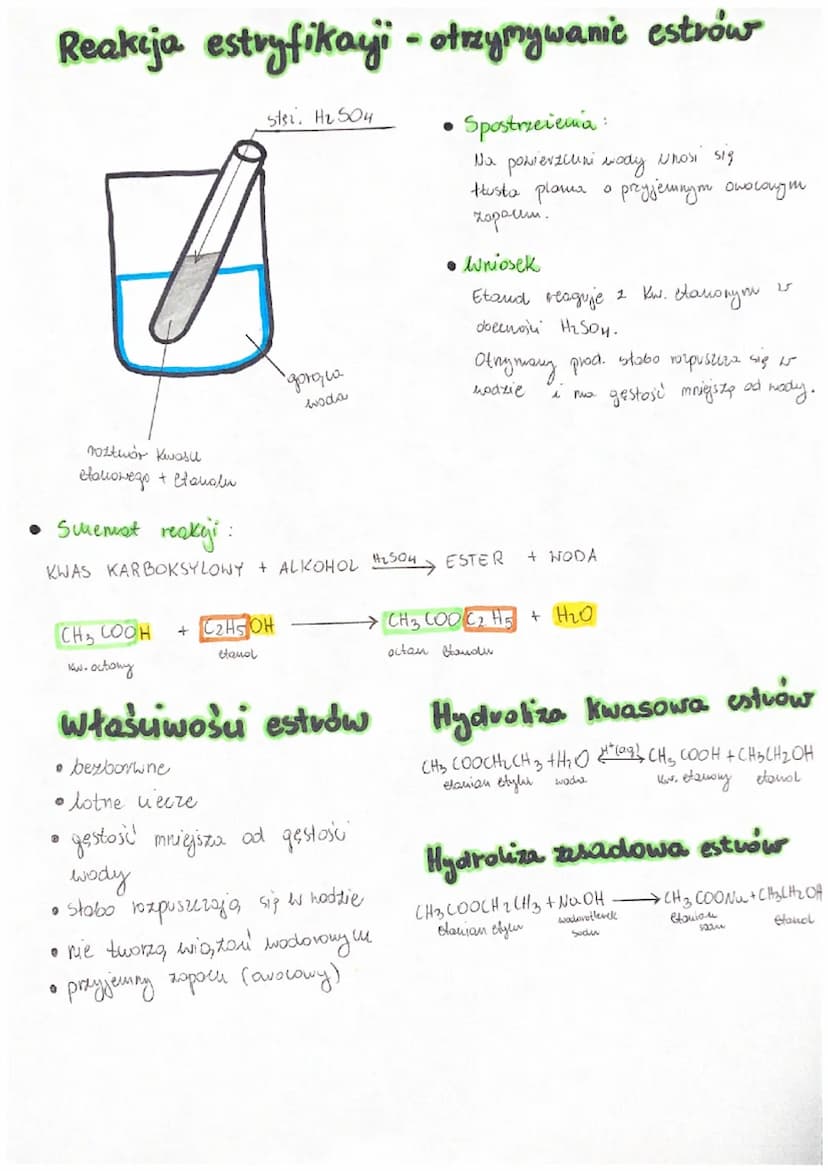 Reakcja estryfikacji - otrzymywanie estrów
stęż. H2SO4
gorąca
woda
roztwór kwasu
etanowego + etanolu
• Spostrzeżenia:
Na powierzchni wody unosi się
tłusta plama o przyjemnym owocowym
zapachu.
• Wniosek
Etanol reaguje z kw. etanowym w
obecności H2SO4.
Otrzymany prod. słabo rozpuszcza się w
wodzie i ma gęstość mniejszą od wody.
• Schemat reakcji:
KWAS KARBOKSYLOWY + ALKOHOL H2SO4→ ESTER + WODA
CH3COOH + C2H5OH → CH3COOC2H5 + H2O
kw. octowy etanol octan etanolu
Właściwości estrów
• bezbarwne
• lotne ciecze
• gęstość mniejsza od gęstości
wody
• słabo rozpuszczają się w wodzie
• nie tworzą wiązań wodorowych
• przyjemny zapach (owocowy)
Hydroliza kwasowa estrów
CH3COOCH2CH3 + H2O ⇄ H+(aq) CH3COOH + CH3CH2OH
etanian etylu woda kw. etanowy etanol
Hydroliza zasadowa estrów
CH3COOCH2CH3 + NaOH → CH3COONa + CH3CH2OH
etanian etylu wodorotlenek etanian etanol
sodu sodu